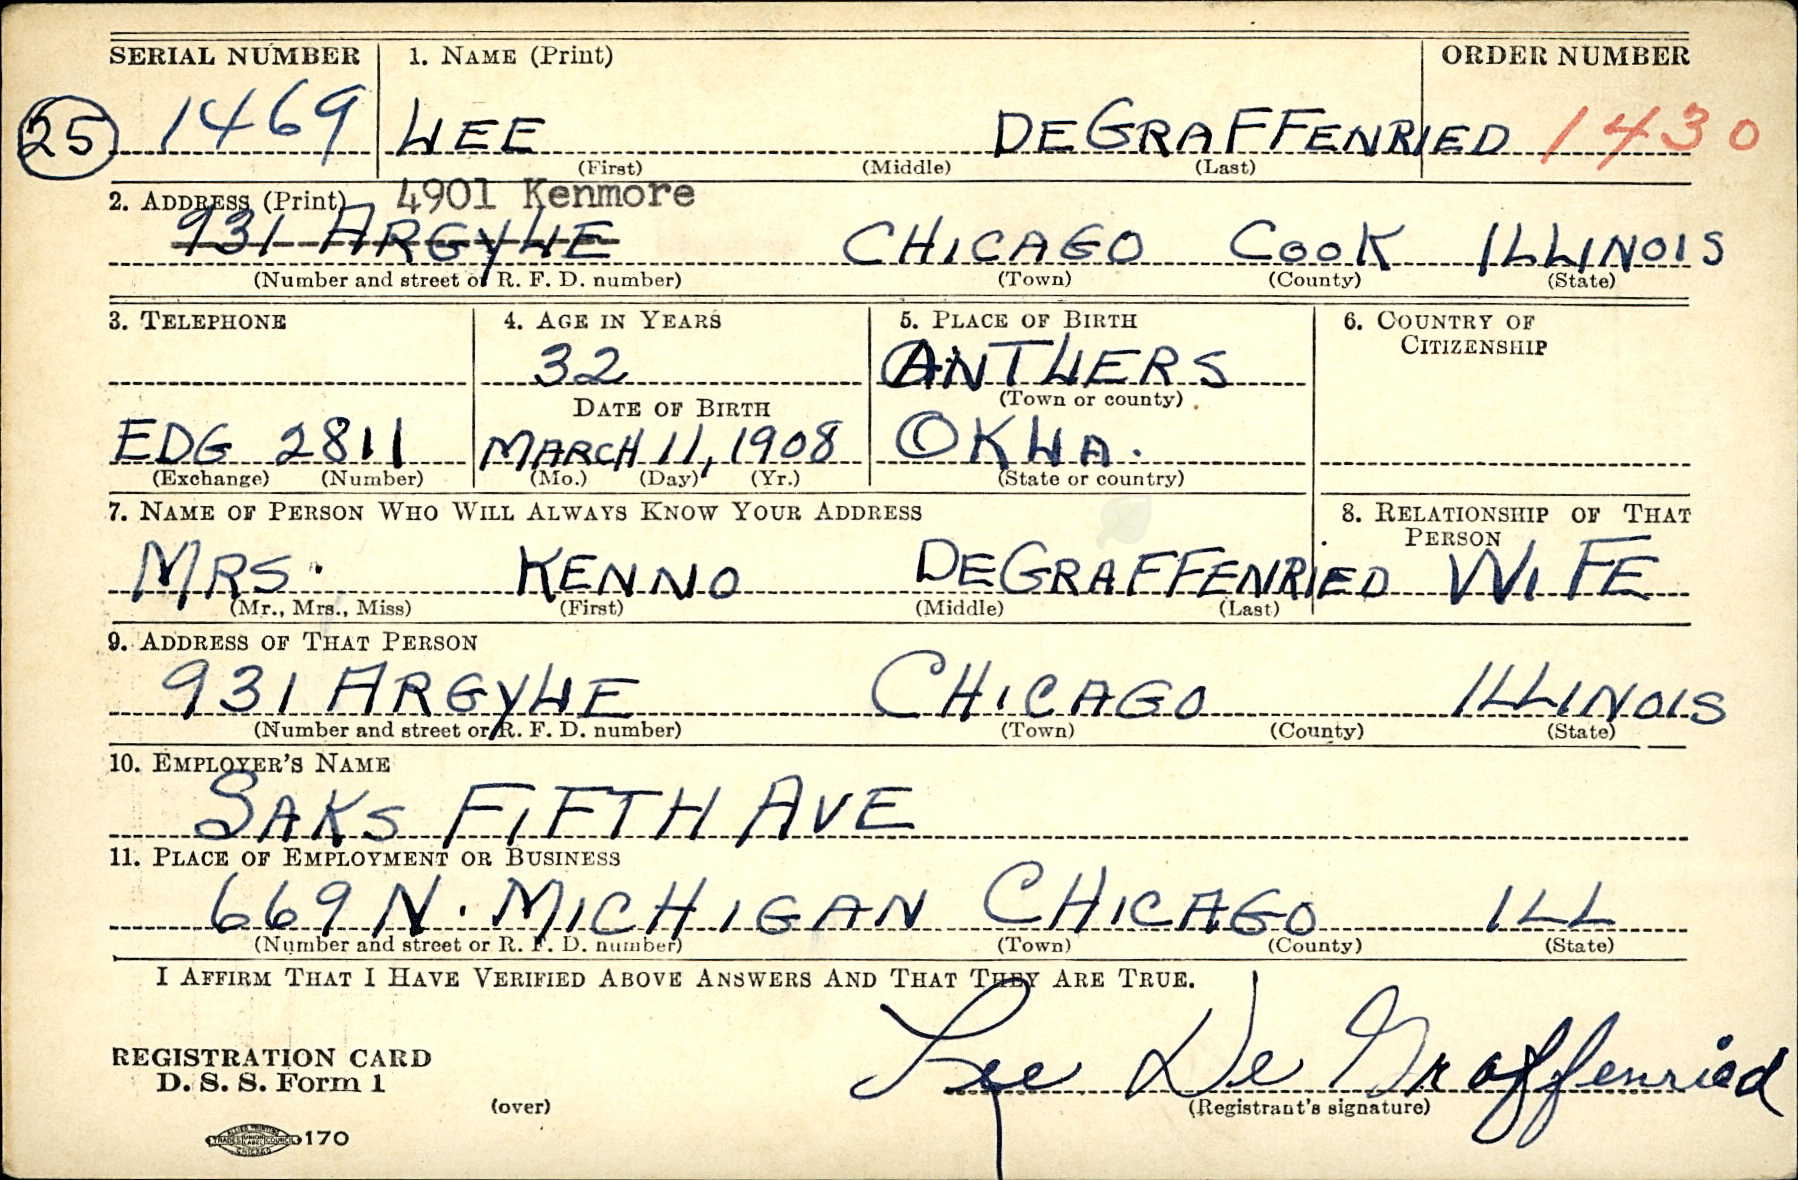 SERIAL NUMBER 1. NAME (Print) ORDER NUMBER
25 1469 LEE DEGRAFFENRIED 1430
(First) (Middle) (Last)
2. ADDRESS (Print) 4901 Kenmore
931 ARGYLE CHICAGO COOK ILLINOIS
(Number and street or R. F. D. number) (Town) (County) (State)
3. TELEPHONE 4. AGE IN YEARS 5. PLACE OF BIRTH 6. COUNTRY OF
CITIZENSHIP
32 ANTLERS
DATE OF BIRTH (Town or county)
EDG 2811 MARCH 11, 1908 OKLA.
(Exchange) (Number) (Mo.) (Day) (Yr.) (State or country)
7. NAME OF PERSON WHO WILL ALWAYS KNOW YOUR ADDRESS 8. RELATIONSHIP OF THAT
PERSON
MRS. KENNO DEGRAFFENRIED WIFE
(Mr., Mrs., Miss) (First) (Middle) (Last)
9. ADDRESS OF THAT PERSON
931 ARGYLE CHICAGO ILLINOIS
(Number and street or R. F. D. number) (Town) (County) (State)
10. EMPLOYER'S NAME
SAKS FIFTH AVE
11. PLACE OF EMPLOYMENT OR BUSINESS
669 N. MICHIGAN CHICAGO ILL
(Number and street or R. F. D. number) (Town) (County) (State)
I AFFIRM THAT I HAVE VERIFIED ABOVE ANSWERS AND THAT THEY ARE TRUE.
Lee De Graffenried
REGISTRATION CARD
D. S. S. Form 1
(over) (Registrant's signature)
ALLIED PRINTING
TRADES UNION LABEL COUNCIL 170
CHICAGO